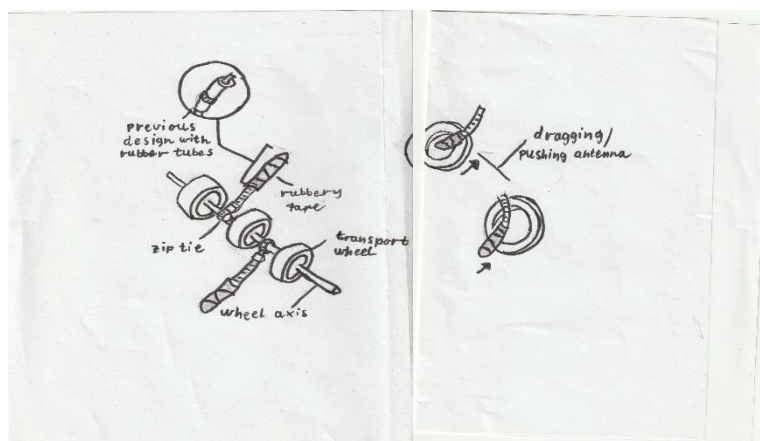 previous
design with
rubber tubes
rubbery
tape
zip tie
transport
wheel
wheel axis
dragging/
pushing antenna